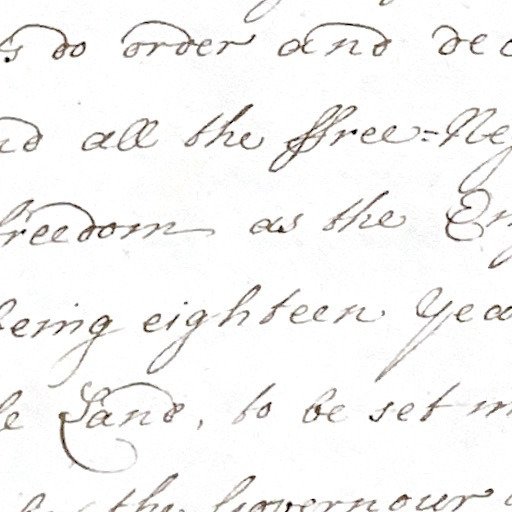 do order and dec
all the ffree-Neg
freedom as the Eng
being eighteen Yea
Land, to be set m
the Governour